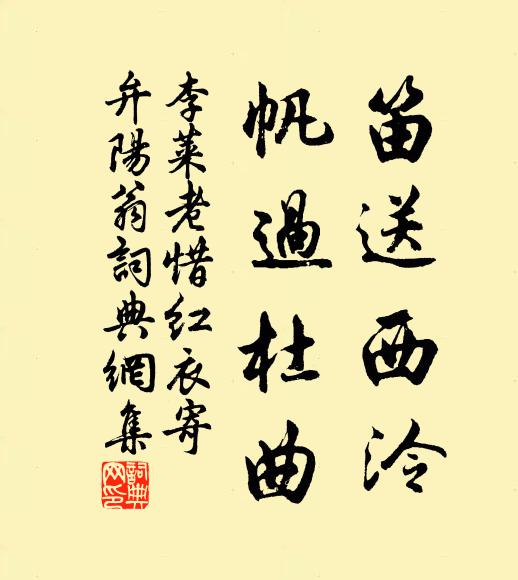 笛送西泠
帆過杜曲
李萊老惜红衣寄
弁陽翁詞典網集
詞典網印